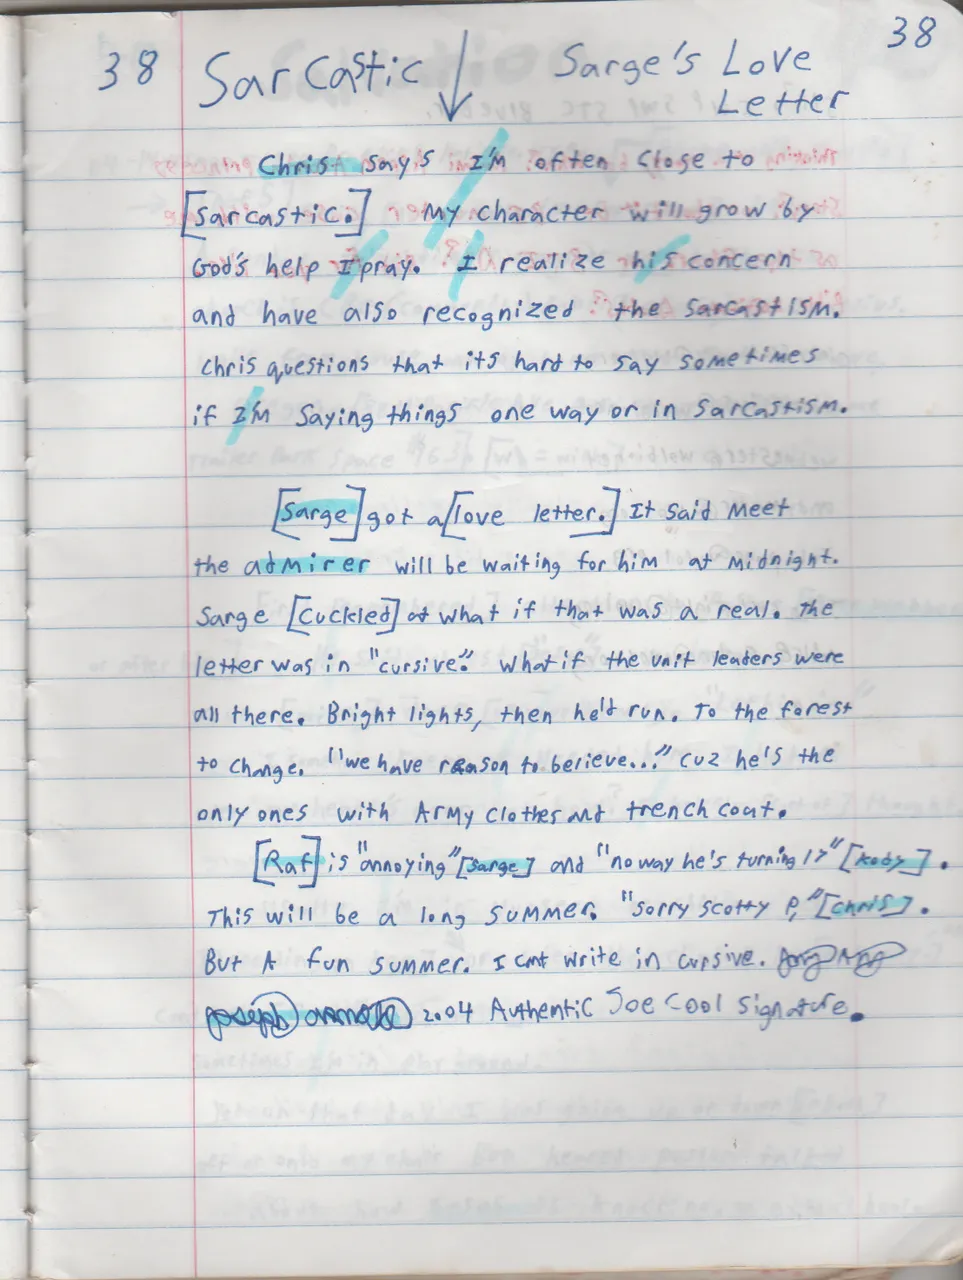 38 Sarcastic ↓ Sarge's Love 38
Letter
Chris says I'm often close to
[sarcastic.] My character will grow by
God's help I pray. I realize his concern
and have also recognized the sarcastism.
Chris questions that its hard to say sometimes
if I'm saying things one way or in sarcastism.
[Sarge] got a [love letter.] It said Meet
the admirer will be waiting for him at midnight.
Sarge [cuckled] at what if that was a real. The
letter was in "cursive." What if the unit leaders were
all there. Bright lights, then he'd run. To the forest
to change. "we have reason to believe..." cuz he's the
only ones with Army clothes and trench coat.
[Raf] is "annoying" [Sarge] and "no way he's turning 17" [kody].
This will be a long summer. "sorry scotty P," [chris].
But A fun summer. I cant write in cursive.
joseph 2004 Authentic Joe Cool Signature.